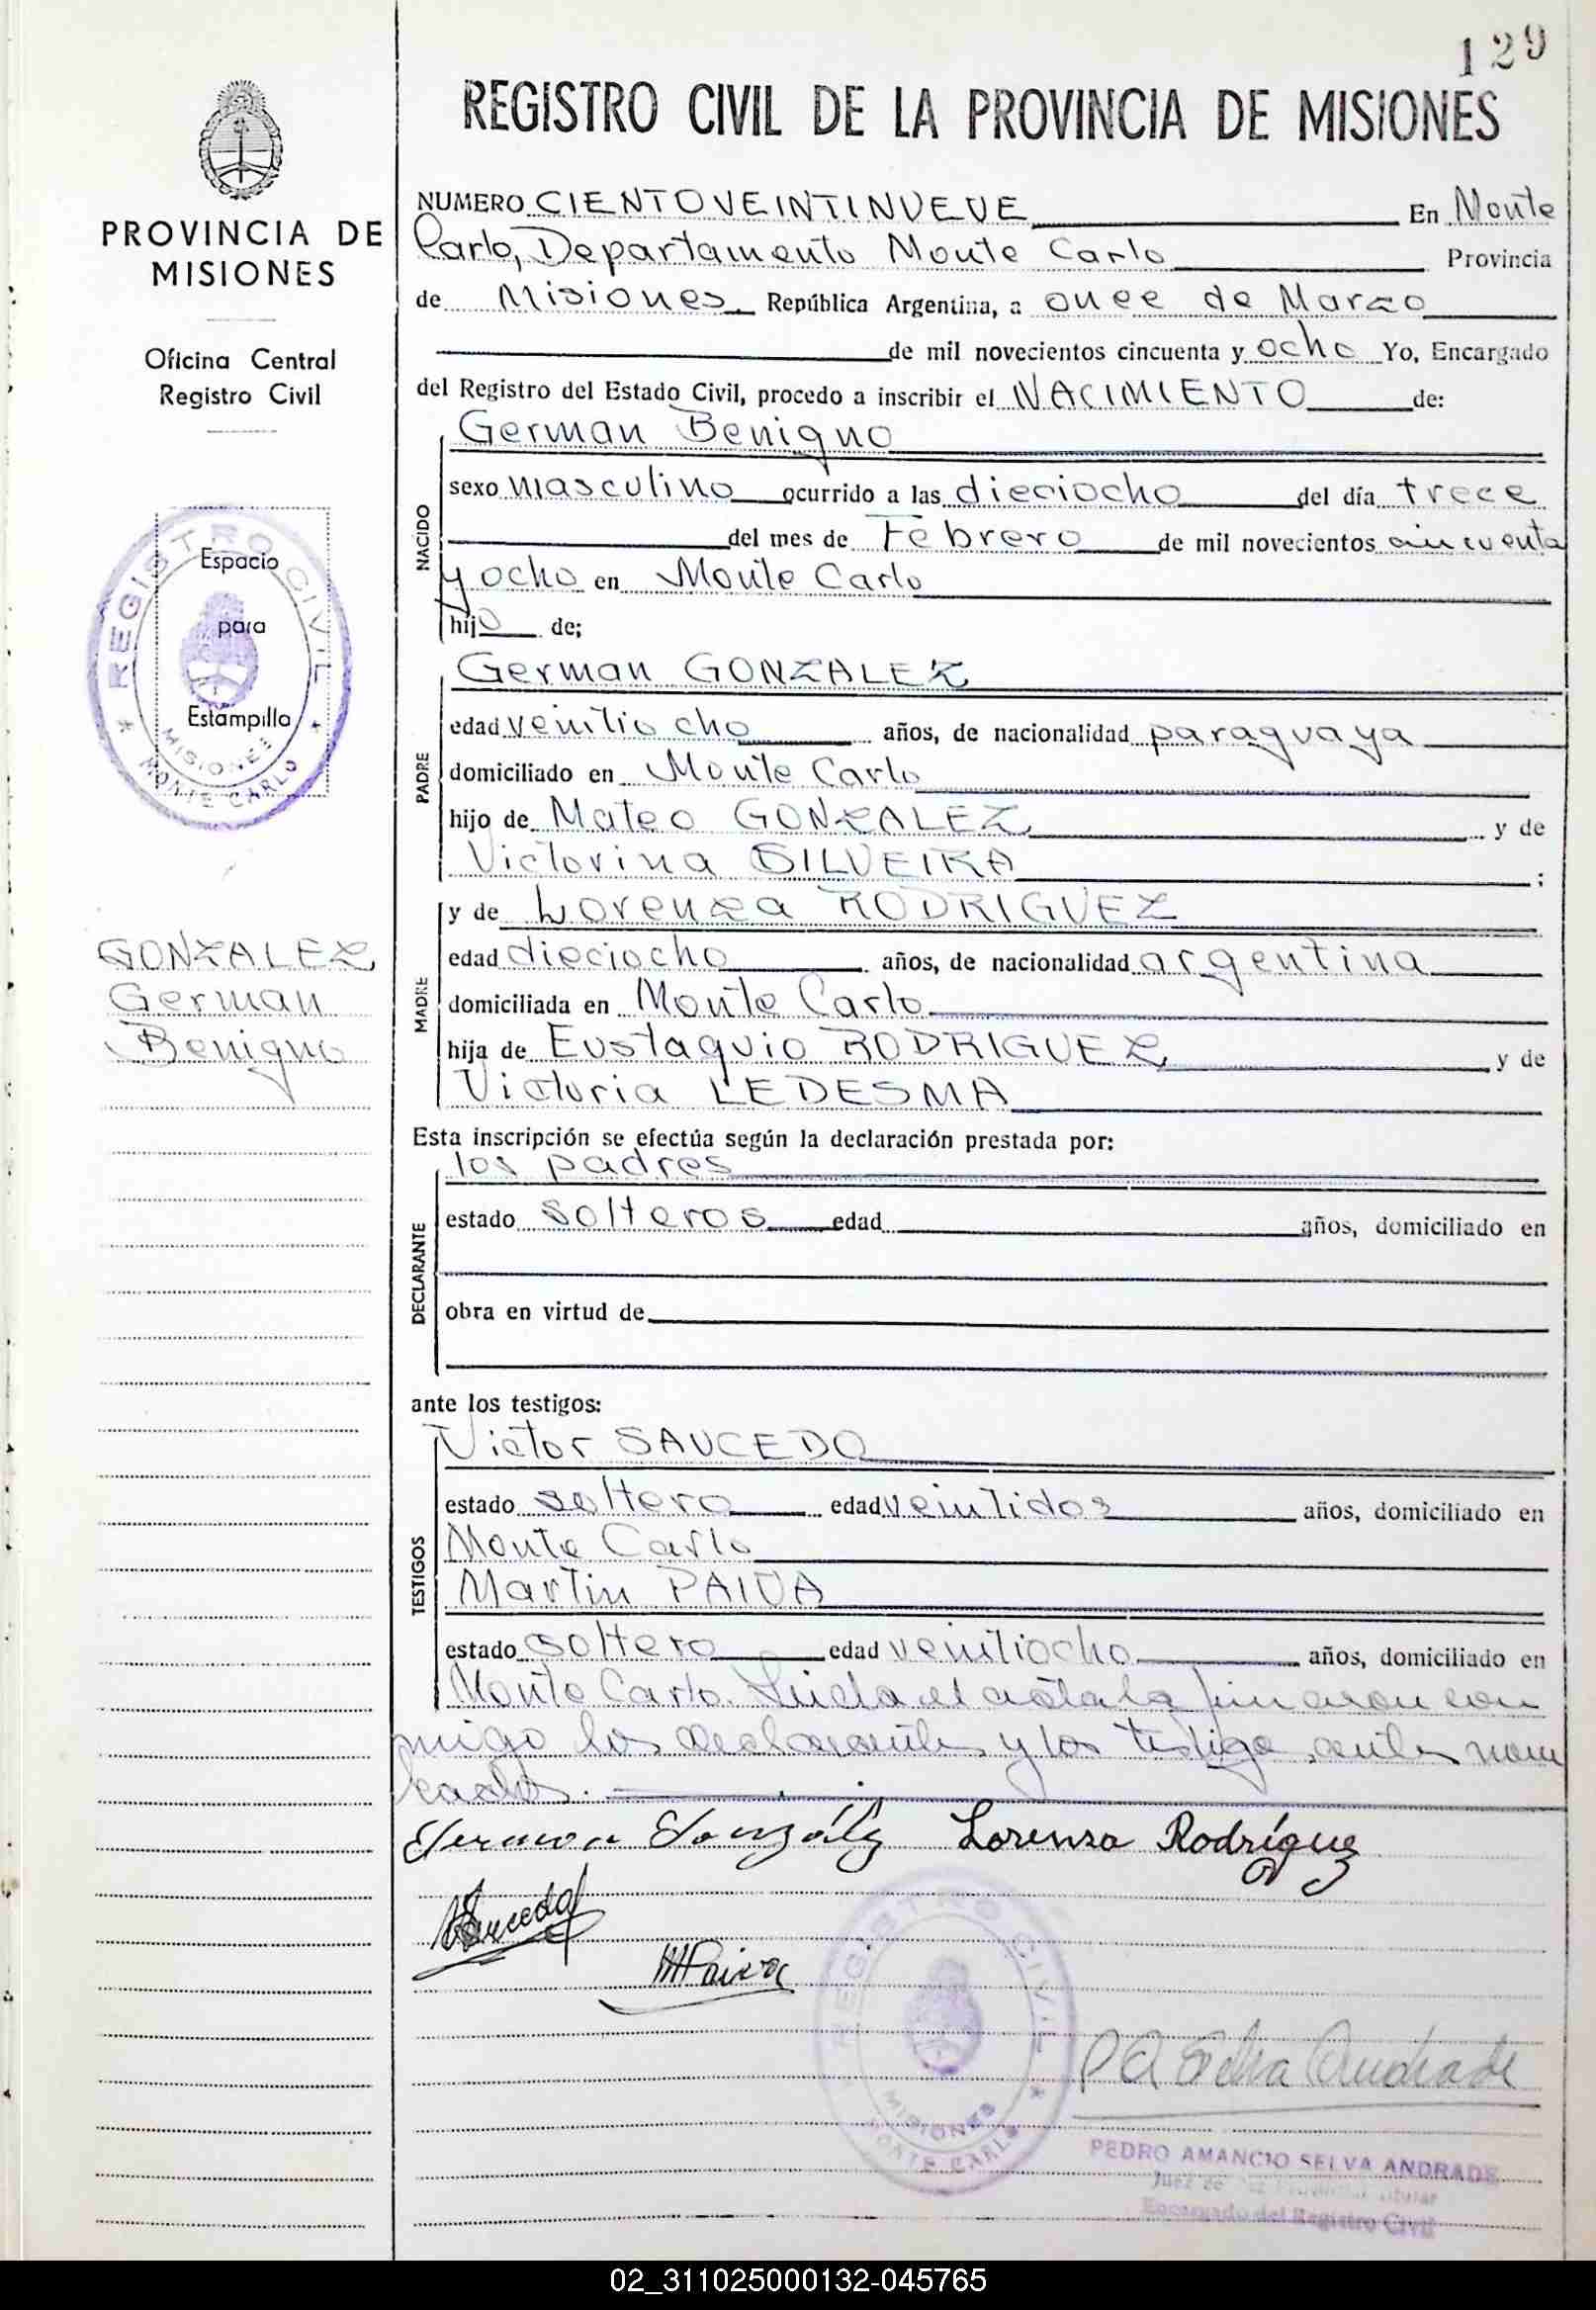 129
REGISTRO CIVIL DE LA PROVINCIA DE MISIONES
PROVINCIA DE
MISIONES
Oficina Central
Registro Civil
Espacio
para
Estampilla
REGISTRO CIVIL
MISIONES
MONTE CARLO
GONZALEZ
German
Benigno
NUMERO CIENTOVEINTINUEVE En Monte
Carlo, Departamento Monte Carlo Provincia
de Misiones. República Argentina, a once de Marzo
de mil novecientos cincuenta y ocho Yo, Encargado
del Registro del Estado Civil, procedo a inscribir el NACIMIENTO de:
NACIDO
German Benigno
sexo masculino ocurrido a las dieciocho del día trece
del mes de Febrero de mil novecientos cincuenta
y ocho en Monte Carlo
hijo de;
PADRE
German GONZALEZ
edad veintiocho años, de nacionalidad paraguaya
domiciliado en Monte Carlo
hijo de Mateo GONZALEZ y de
Victorina SILVEIRA ;
MADRE
y de Lorenza RODRIGUEZ
edad dieciocho años, de nacionalidad argentina
domiciliada en Monte Carlo
hija de Eustaquio RODRIGUEZ y de
Victoria LEDESMA
Esta inscripción se efectúa según la declaración prestada por:
DECLARANTE
los padres
estado solteros edad años, domiciliado en
obra en virtud de
ante los testigos:
TESTIGOS
Victor SAUCEDO
estado soltero edad veintidos años, domiciliado en
Monte Carlo
Martin PAIVA
estado soltero edad veintiocho años, domiciliado en
Monte Carlo. Leida el acta la firmaron con
migo los declarantes y los testigos antes nom
brados.
German González Lorenza Rodríguez
Saucedo
M Paiva
REGISTRO CIVIL
MISIONES
MONTE CARLO
P A Selva Andrade
PEDRO AMANCIO SELVA ANDRADE
Juez de Titular
Encargado del Registro Civil
02_311025000132-045765